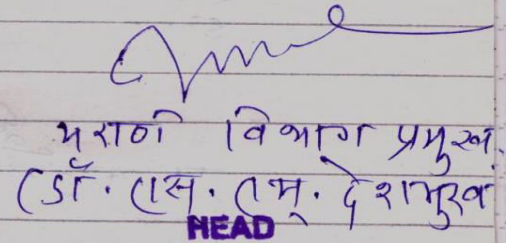 मराठी विभाग प्रमुख
(डॉ. एस. एम. देशमुख
HEAD